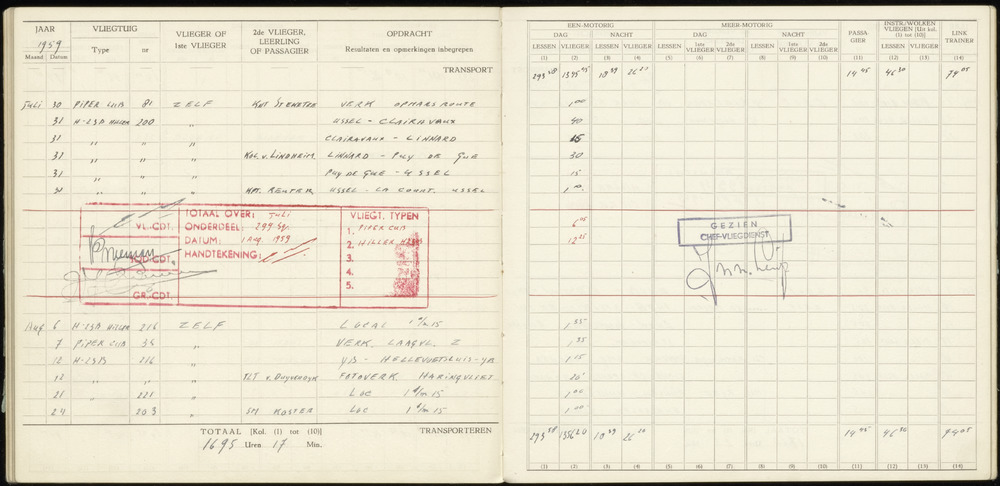 JAAR VLIEGTUIG VLIEGER OF 1ste VLIEGER 2de VLIEGER, LEERLING OF PASSAGIER OPDRACHT
1959 Type nr Resultaten en opmerkingen inbegrepen
Maand Datum
TRANSPORT
Juli 30 PIPER CUB 81 ZELF VERK OPMARSROUTE
31 H-23B HILLER 200 " USSEL - CLAIRAVAUX
31 " " " CLAIRAVAUX - LINNARD
31 " " " KOL. v. LINDHEIM LINNARD - PUY DE GUE
31 " " " PUY DE GUE - USSEL
31 " " " HPT. REUTER USSEL - LA COURT. USSEL
TOTAAL OVER: Juli
ONDERDEEL: 299 Sq.
DATUM: 1 Aug. 1959
HANDTEKENING:
VL.-CDT.
SQD.CDT.
GR.-CDT.
VLIEGT. TYPEN
1. PIPER CUB
2. HILLER H23B
3.
4.
5.
Aug 6 H-23B HILLER 216 ZELF LOCAL
7 PIPER CUB 34 " VERK. LAAGVL. 2
12 H-23B 216 " YB - HELLEVOETSLUIS - YB
12 " " " TLT v. DUYVENDYK FOTOVERK. HARINGVLIET
21 " 221 " LOC
24 203 " SM KOSTER LOC
TOTAAL [Kol. (1) tot (10)] TRANSPORTEREN
1695 Uren 17 Min.
EEN-MOTORIG MEER-MOTORIG PASSA GIER INSTR./WOLKEN VLIEGEN [Uit kol. (1) tot (10)] LINK TRAINER
DAG NACHT DAG NACHT
LESSEN VLIEGER LESSEN VLIEGER LESSEN 1ste VLIEGER 2de VLIEGER LESSEN 1ste VLIEGER 2de VLIEGER LESSEN VLIEGER
(1) (2) (3) (4) (5) (6) (7) (8) (9) (10) (11) (12) (13) (14)
293 58 1345 45 18 39 26 20 14 45 46 30 74 05
1 00
40
15
30
15
1 00
6 05
12 25
GEZIEN
CHEF-VLIEGDIENST
1 55
1 35
1 15
1 00
1 00
293 58 1356 20 18 39 26 20 14 45 46 30 74 05
(1) (2) (3) (4) (5) (6) (7) (8) (9) (10) (11) (12) (13) (14)